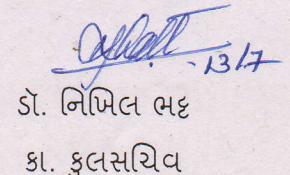 13/7
ડૉ. નિખિલ ભટ્ટ
કા. કુલસચિવ